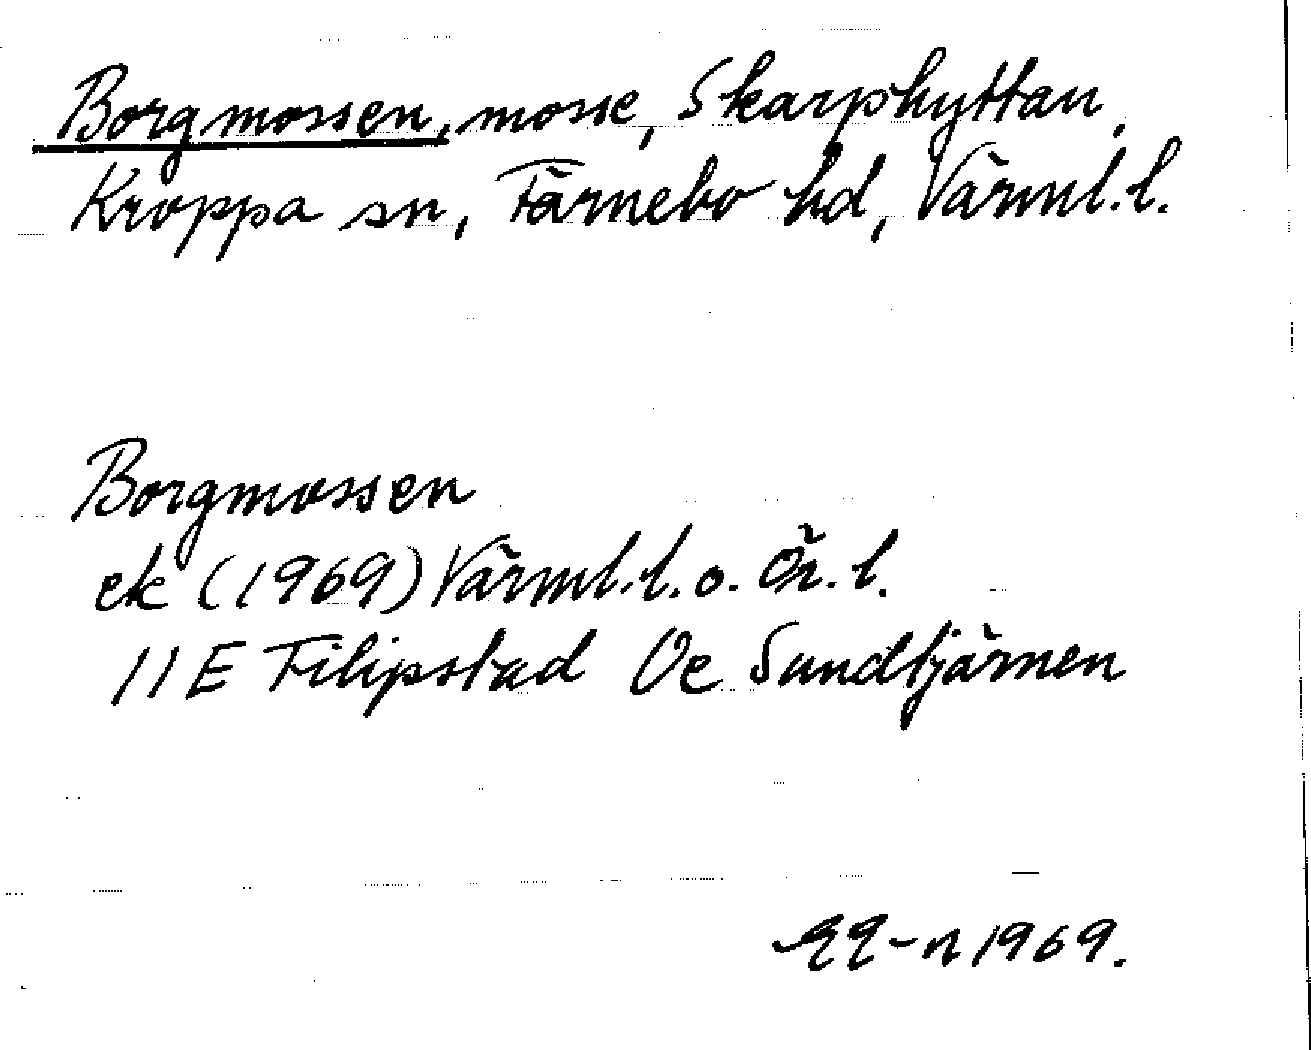 Borgmossen, mosse, Skarphyttan,
Kroppa sn, Färnebo hd, Värml. l.
Borgmossen
ek (1969) Värml. l. o. Ör. l.
11E Filipstad 0e Sundtjärnen
1969.